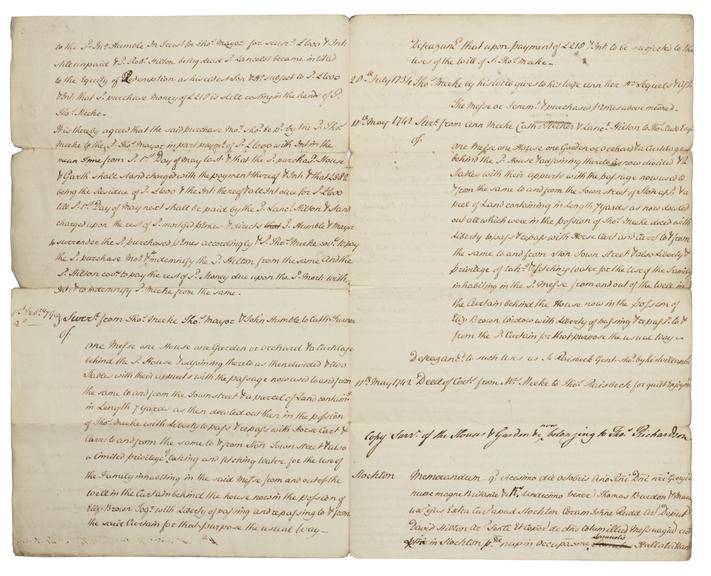 to the Sd. Jno. Humble In Trust for Thos. Mayor for securg. £600 & Intt.
still unpaid & Sd. Robt. Hilton being dead Sd. Lancelot became intitled
to the Equity of Redemption as his eldest Son & Hr. subject to Sd. £600
& Int. that Sd. purchase money of £218 is still resting in the hands of Sd.
Thos. Meeke.
It is thereby agreed that the said purchase Mony. shd. be pd. by the Sd. Thos.
Meeke to the Sd. Thos. Mayor in part paymt. of Sd. £600 with Int. in the
mean time from Sd. 1st. Day of May last & that the Sd. purchasd. House
& Garth shall stand charged with the payment thereof & Int. & that £382
being the Residue of Sd. £600 & the Int. thereof & all Int. due for Sd. £600
till Sd. 1st. Day of May next shall be paid by the Sd. Lanct. Hilton & stand
charged upon the rest of Sd. mortged. pmes & directs Sd. Humble & Mayor
to surrender the Sd. purchased pmes accordingly & Sd. Thos. Meeke covts. to pay
the Sd. purchase Mony. & indemnify the Sd. Hilton from the same And the
Sd. Hilton covts. to pay the rest of Sd. Money due upon the Sd. Morte. with
Int. & to indemnify Sd. Meeke from the same.
Surrr. from Thos. Meeke Thos. Mayor & John Humble to Cath:
of
One Messe. one House one Garden or orchard & a Curtilage
behind the Sd. House & adjoining thereto as then divided & two
Stables with their appurts. with the passage now used to and from
the same to and from the Town street & a parcel of Land containing
in Length 7 yards as then dealed out then in the possession
of Thos. Meeke with Liberty to pass & repass with Horse Cart &
Carre to and from the same to & from Ston. Town street & also
a limited priviledge of taking and fetching water for the use of
the Family inhabiting in the said Messe. from and out of the
well in the Curtain behind the house now in the possession of
Eliz: Brown with Liberty of passing and repassing to & from
the said Curtain for that purpose the usual way
Defeazance that upon payment of £218 & Int. to be surrendered to the
uses of the will of Sd. Thos. Meeke.
20th. July 1734 Thos. Meeke by his will gives to his wife Ann her Hrs. Sequels & Assigns
The Messe. or Tenemt. & purchased pmes above menced.
11th. May 1742 Surrr. from Ann Meeke Cath: & Lanct. Hilton to Thos.
of
one Messe. one House one Garden or orchard & a Curtilage
behind the Sd. House & adjoining thereto as now divided & 2
Stables with their appurts. with the passage now used to
& from the same to and from the Town street of Ston. & a
pcel of Land containing in Length 7 yards as now dealed
out all which were in the possion of Thos. Meeke decd. with
Liberty to pass & repass with Horse Cart and Carre to & from
the same to and from Ston. Town street & also Liberty &
privilege of takg. & fetching water for the use of the Family
inhabiting in the Sd. Messe. from and out of the Well in
the Curtain behind the House now in the Possion of
Eliz: Brown Widow with Liberty of passing & repassg. to &
from the Sd. Curtain for that purpose the usual way
Defeazance to such uses as Sd. Raisbeck Gent. shd. by his will
11th. May 1742 Deed of Covt. from Mrs. Meeke to Thos. Raisbeck for quiet enjoyment
Copy Surrr. of the House & Garden &c. now belonging to Thos. Richardson
Stockton Memorandum qd. vicesimo die Octobris Anno Rni. Dni. nri. Georgii
nunc magne Britanie &c. undecimo
extra Cur. apud Stockton Coram John Rudd Ar.
David Hilton
in Stockton pd. nup. in occupacone